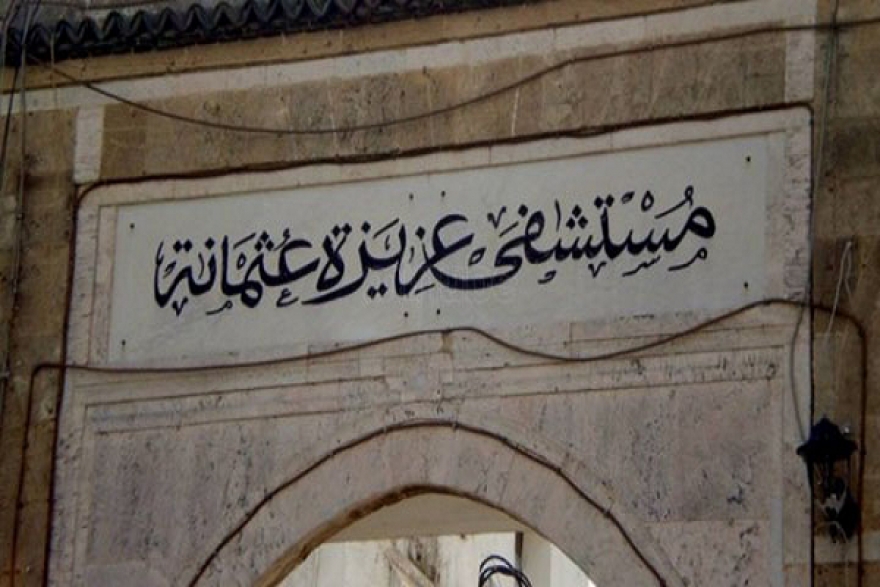 مُسْتشفى عزيزة عُثمانة